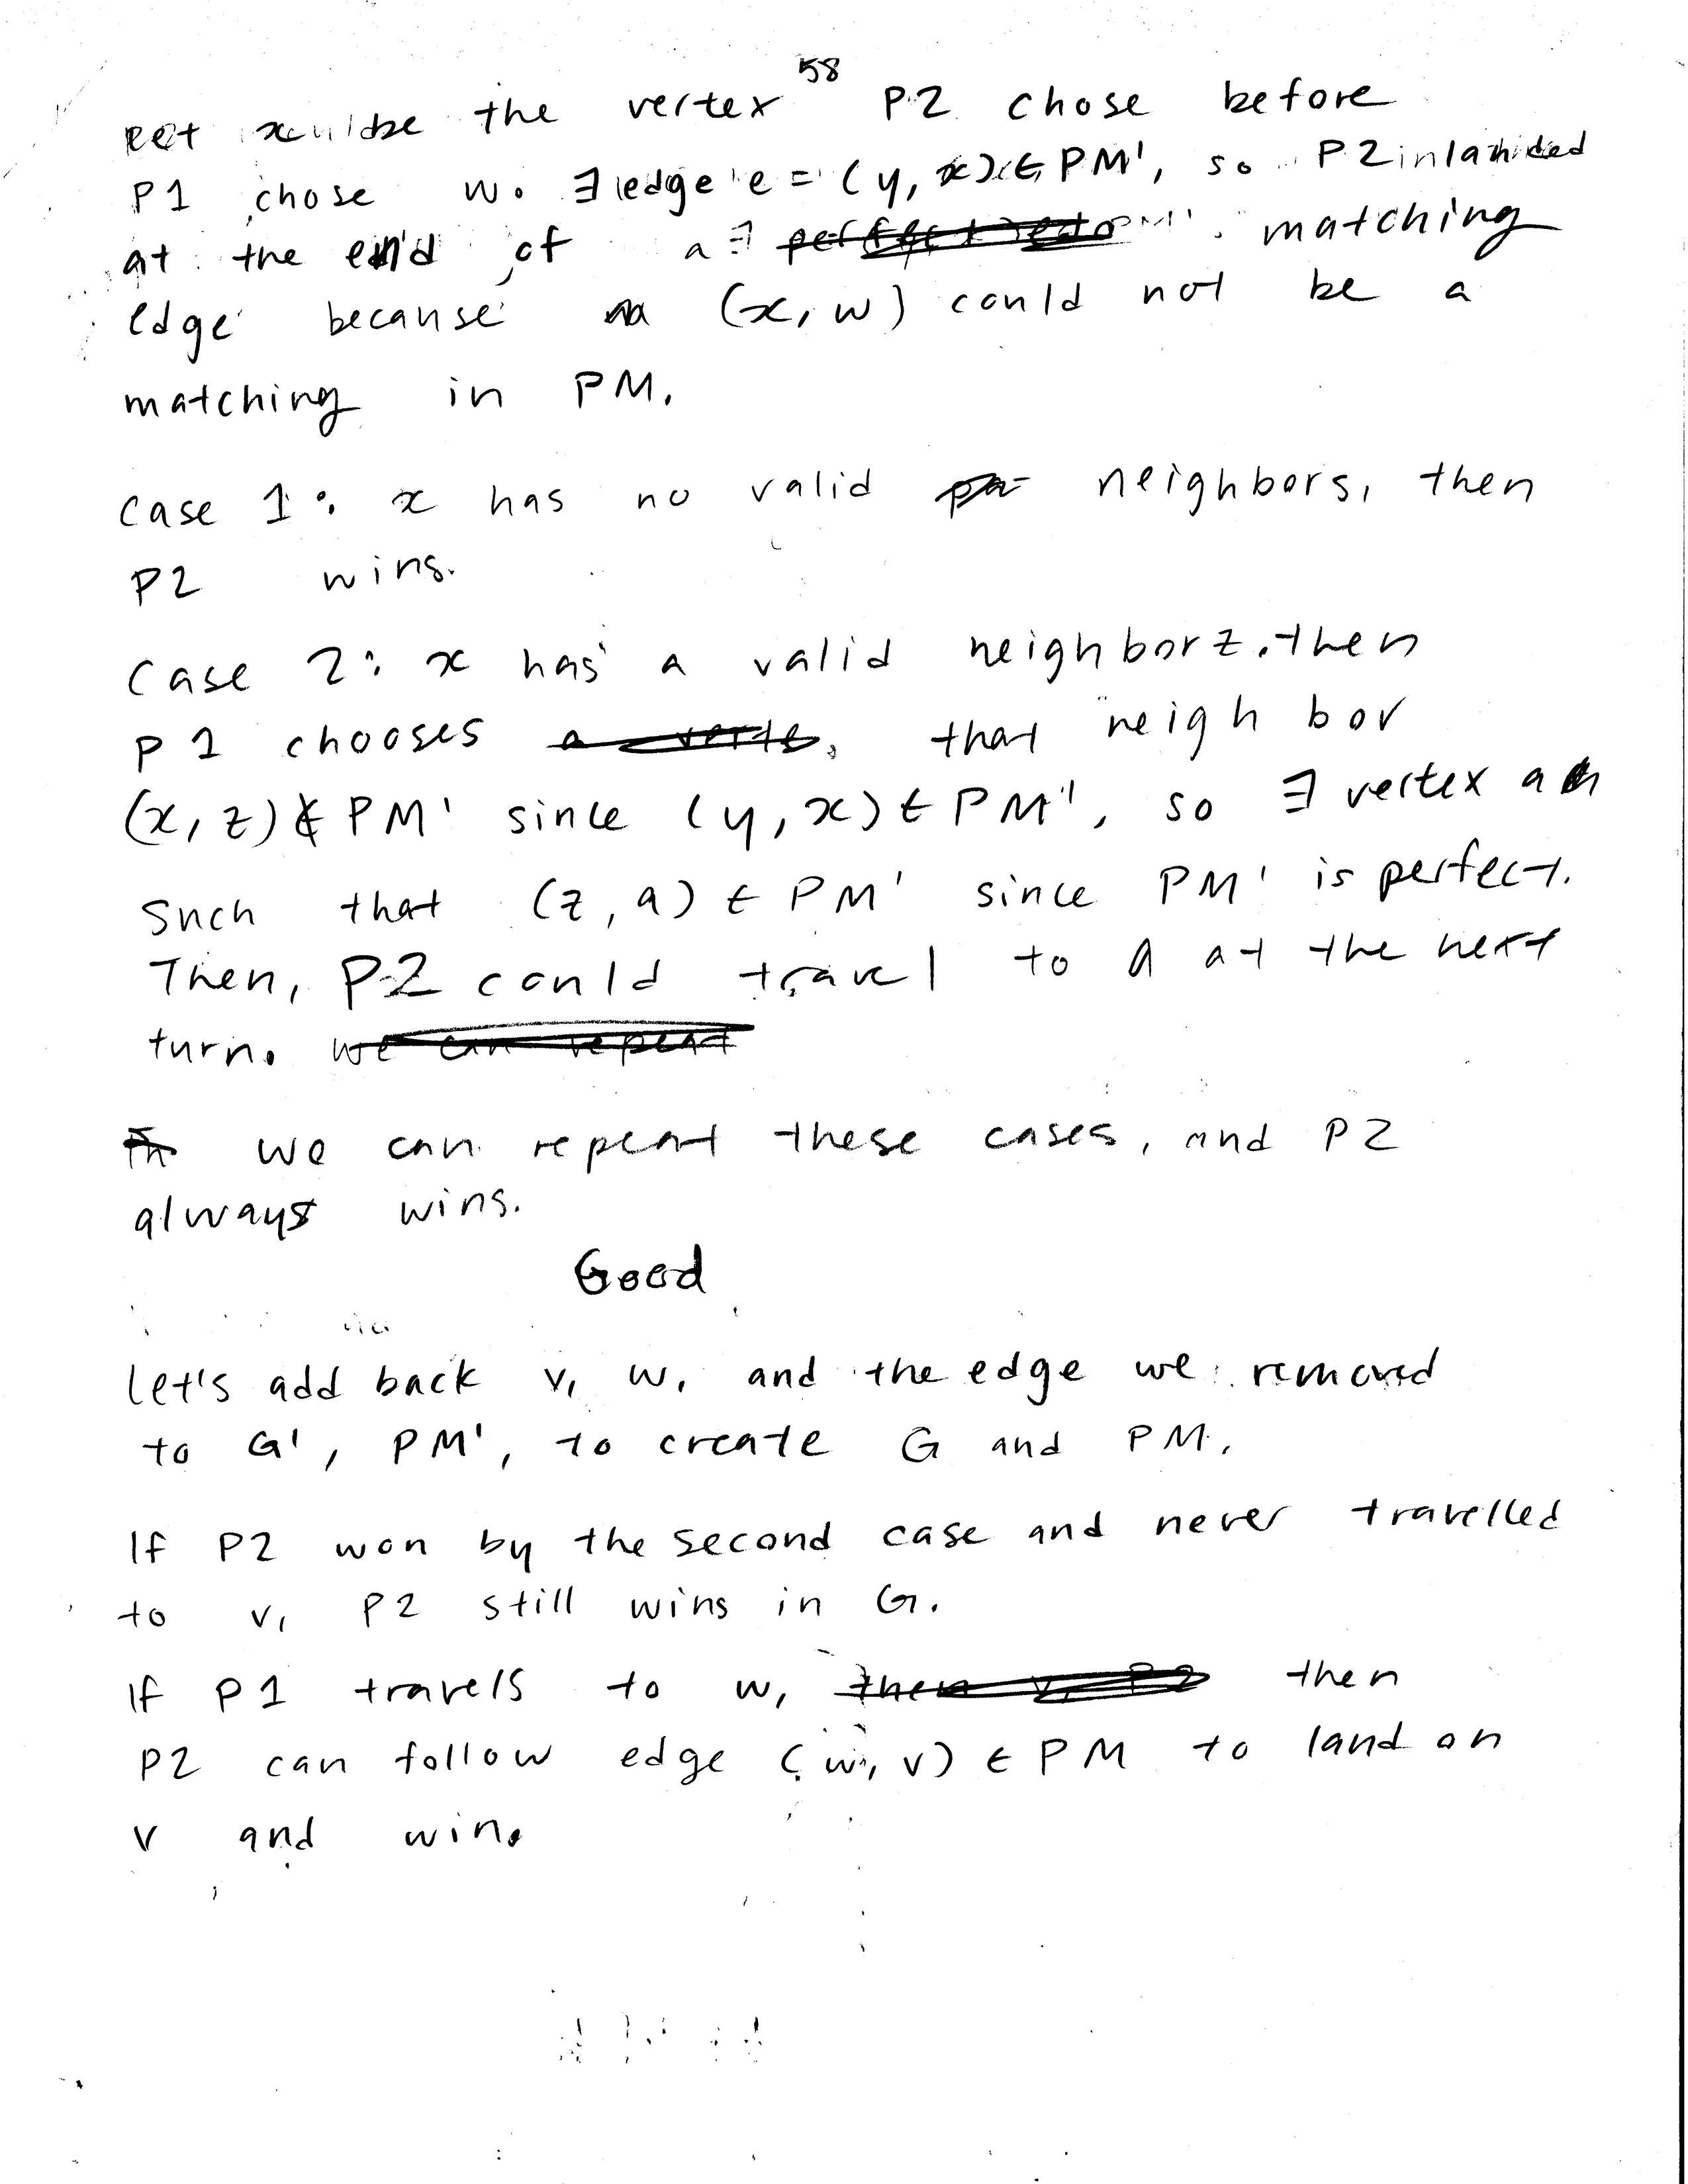 58
let x be the vertex P2 chose before
P1 chose w. ∃ edge e = (y, x) ∈ PM', so P2 landed
at the end of a PM' matching
edge because (x, w) could not be a
matching in PM.
case 1: x has no valid neighbors, then
P2 wins.
case 2: x has a valid neighbor z. then
P1 chooses that neighbor
(x, z) ∉ PM' since (y, x) ∈ PM', so ∃ vertex a
such that (z, a) ∈ PM' since PM' is perfect.
Then, P2 could travel to a at the next
turn.
we can repeat these cases, and P2
always wins.
Good
Let's add back v, w, and the edge we removed
to G', PM', to create G and PM.
If P2 won by the second case and never travelled
to v, P2 still wins in G.
If P1 travels to w, then
P2 can follow edge (w, v) ∈ PM to land on
v and win.